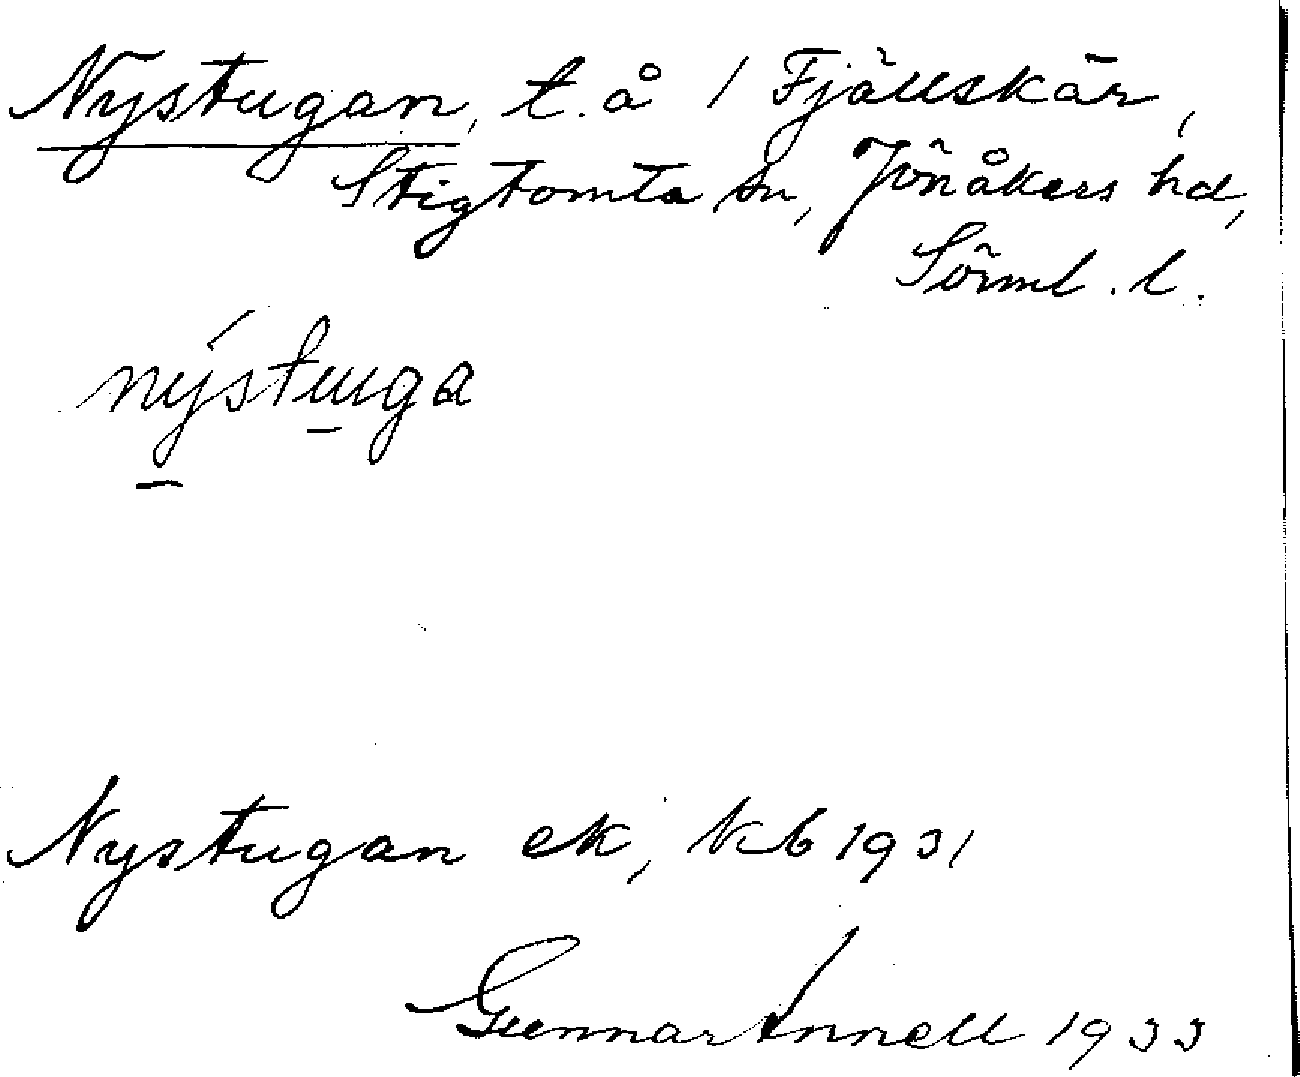 Nystugan, t. å 1 Fjällskär,
Stigtomta sn, Jönåkers hd,
Sörml. l.
nýstuga
Nystugan ek, Kb 1931
Gunnar Annell 1933